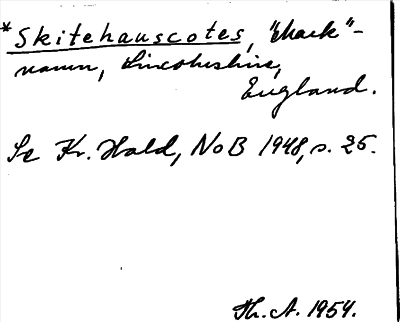 *Skitehauscotes, "mark"-
namn, Lincolnshire,
England.
Se Kr. Hald, NoB 1948, s. 25.
Th. A. 1954.